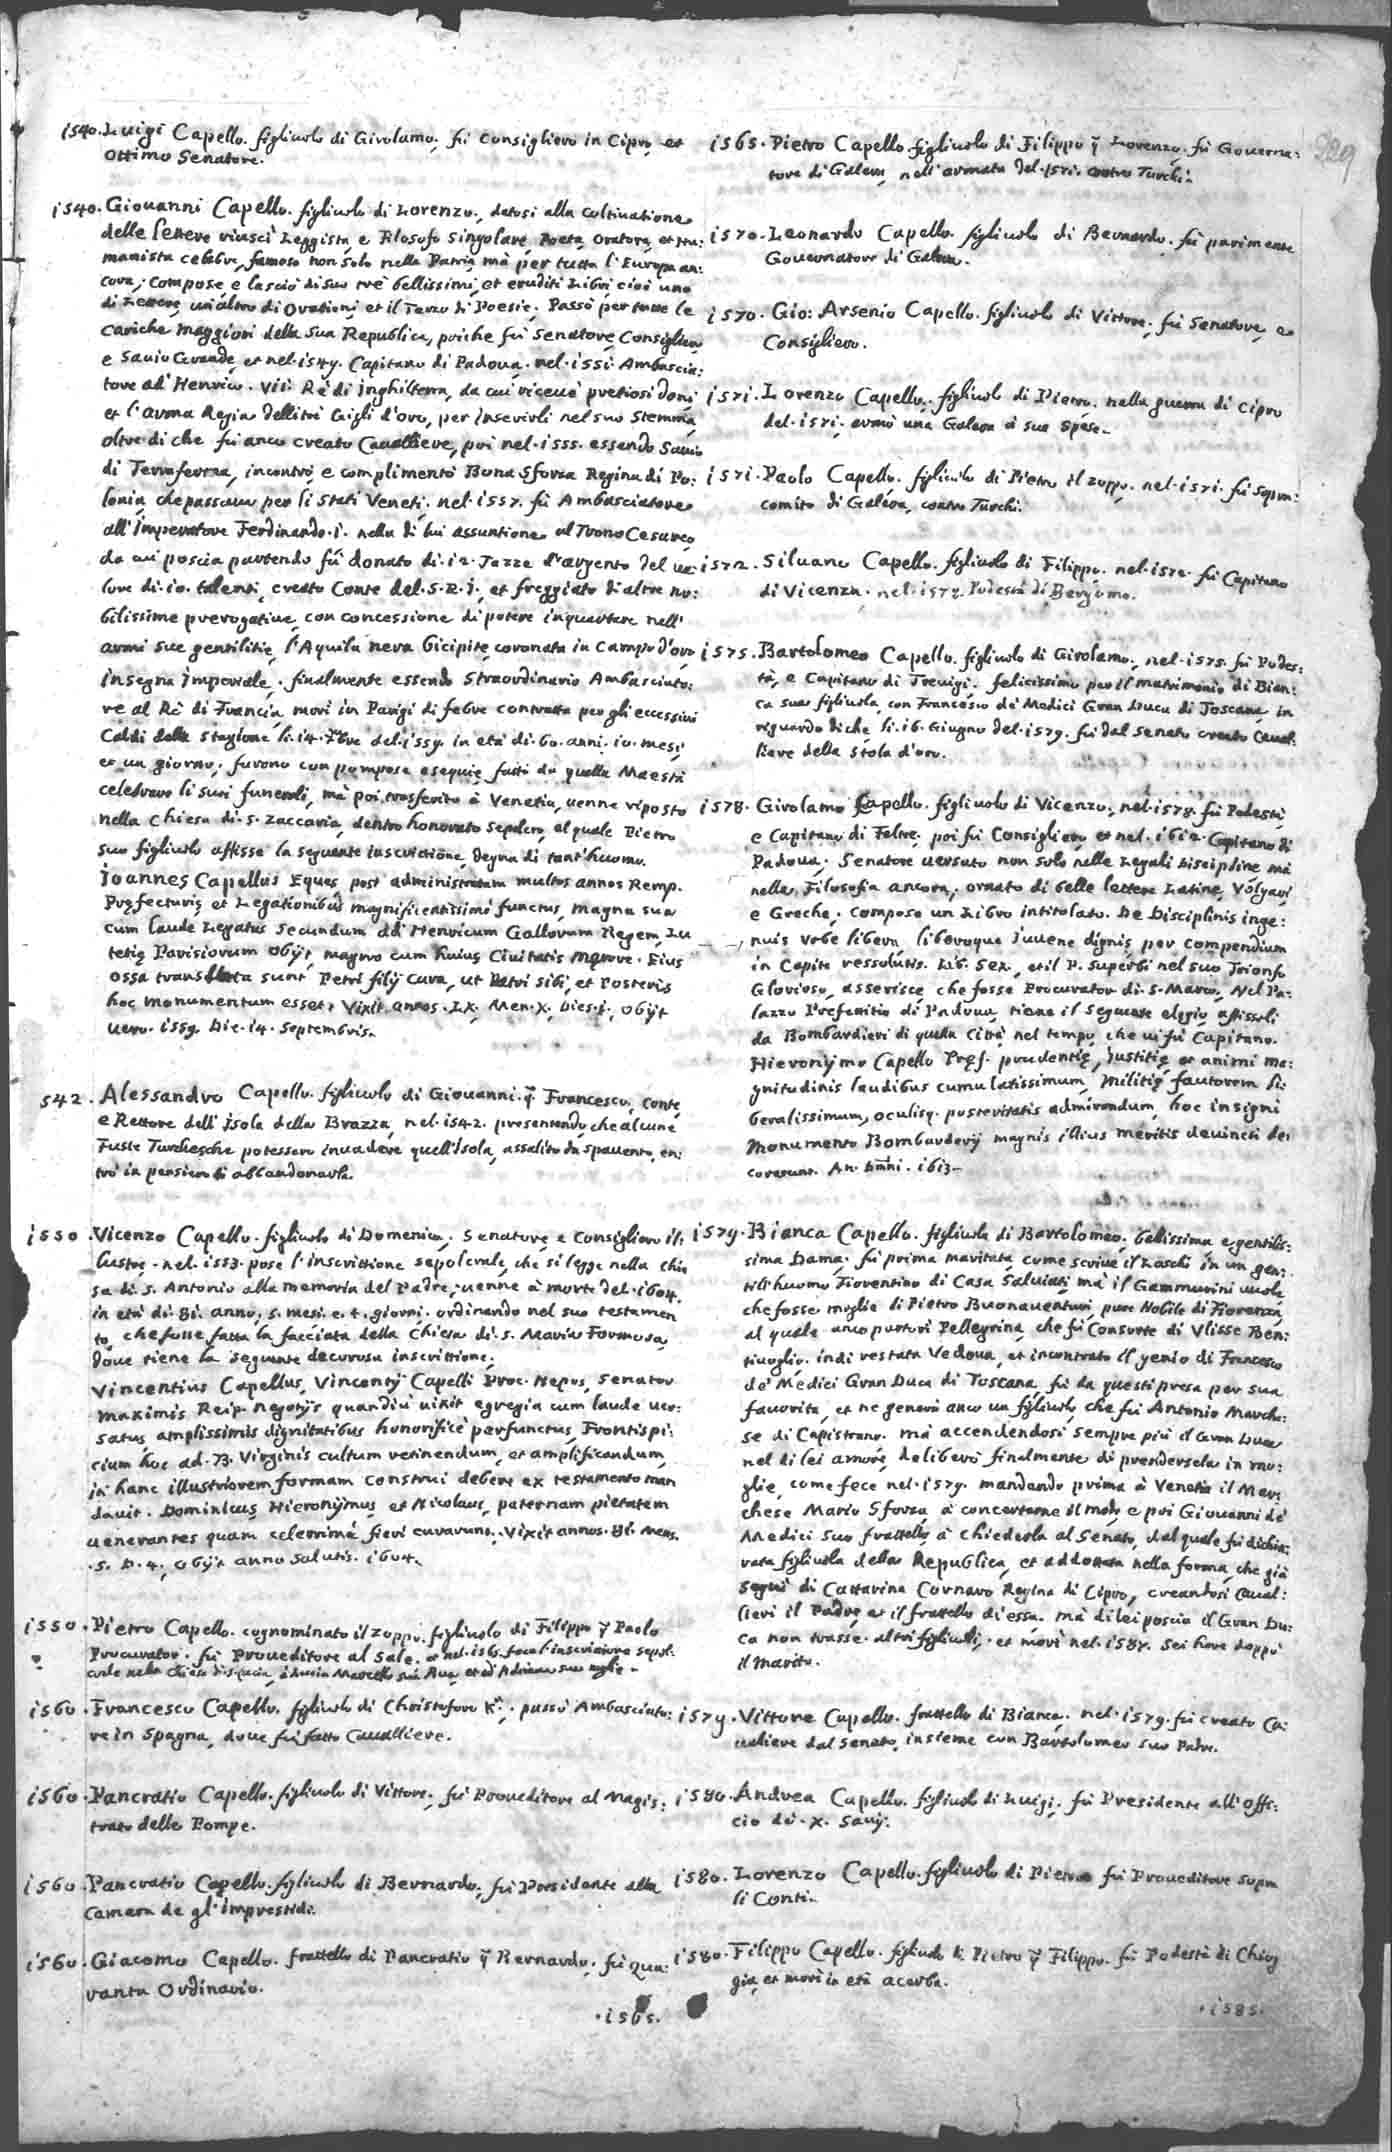 229
1540. Luigi Capello. figliuolo di Girolamo. fù Consigliero in Cipro, et
Ottimo Senatore.
1540. Giouanni Capello. figliuolo di Lorenzo., datosi alla coltivatione
delle lettere riuscì Leggista e Filosofo singolare, Poeta, Oratora, et Hu:
manista celebre, famoso non solo nella Patria mà per tutta l'Europa an:
cora; compose e lasciò di suo trè bellissimi, et eruditi Libri cioè uno
di Lettere, un altro di Orationi, et il Terzo di Poesie. Passò per tutte le
cariche maggiori della sua Republica, poiche fù Senatore, Consigliero
e Sauio Grande, et nel.1549. Capitano di Padoua. nel.1551. Ambascia:
tore ad Henrico. VII. Rè di Inghilterra, da cui riceuè pretiosi doni
et l'arma Regia delli tri Gigli d'oro, per inserirli nel suo Stemma,
oltre di che fù anco creato Cauallíere, poi nel.1555. essendo Sauio
di Terraferma, incontrò e complimentò Bona Sforza Regina di Po:
lonia, che passaua per li Stati Veneti. nel.1557. fù Ambasciatore
all'Imperatore Ferdinando.I. nella di lui assuntione al Trono Cesareo,
da cui poscia partendo fù donato di.12. Tazze d'argento del ua:
lore di.10. talenti, creato Conte del.S.R.I., et freggiato di altre no:
bilissime prerogatiue, con concessione di potere inquartare nell'
armi sue gentilitie, l'Aquila nera bicipite, coronata in campo d'oro
insegna Imperiale. finalmente essendo Straordinario Ambasciato:
re al Rè di Francia, morì in Parigi di febre contratta per gli eccessiui
Caldi della stagione li.14.7bre del.1559. in età di.60. anni. 10. mesi,
et un giorno; furono con pompose esequie fatti da quella Maestà
celebrare li suoi funerali, mà poi trasferito à Venetia, uenne riposto
nella Chiesa di.S.Zaccaria, dentro honorato sepolcro, al quale Pietro
suo figliuolo affisse la seguente inscrittione, degna di tant'huomo.
Ioannes Capellus Eques, post administratam multos annos Remp.
Pręfecturis, et Legationibus magnificentissimè functus, magna sua
cum laude Legatus Secundum ad Henricum Gallorum Regem, Lu
tetię Parisiorum obijt, magno cum huius Ciuitatis męrore. Eius
ossa translata sunt Petri filij cura, ut Patri sibi, et Posteris
hoc monumentum esset. Vixit annos.LX. Men.X. Dies.I. obijt
uero.1559. Die.14. Septembris.
542. Alessandro Capello. figliuolo di Giouanni.q Francesco, Conte,
e Rettore dell'Isola della Brazza, nel.1542. presentendo, che alcune
Fuste Turchesche potessero inuadere quell'Isola, assalito da spauento, en:
trò in pensiero di abbandonarla.
1550. Vicenzo Capello. figliuolo di Domenico, Senatore, e Consigliero il:
lustre. nel.1553. pose l'inscrittione sepolcrale, che si legge nella Chie
sa di.S. Antonio alla memoria del Padre, uenne à morte del.1604.
in età di.81. anno, 5. mesi. e.4. giorni. ordinando nel suo testamen
to, che fosse fatta la facciata della Chiesa di.S. Maria Formosa,
doue tiene la seguente decorosa inscrittione.
Vincentius Capellus, Vincentij Capelli Proc. Nepos, Senator
maximis Reip. negotijs quandiù uixit egregia cum laude uer:
satus amplissimis dignitatibus honorificè perfunctus, Frontispi:
cium hoc ad.B. Virginis cultum retinendum, et amplificandum,
in hanc illustriorem formam construi debere ex testamento man
dauit. Dominicus, Hieronijmus, et Nicolaus, paternam pietatem
uenerantes quam celerrimè fieri curarunt. Vixit annos.81. Mens.
.5. D.4. obijt anno salutis.1604.
1550. Pietro Capello. cognominato il zoppo. figliuolo di Filippo q Paolo
Procurator. fù Proueditore al Sale. et nel.1565. fece l'inscrizione sepol:
crale nella Chiesa à Maria Marcello sua Aua, et ad Adriana sua moglie.
1560. Francesco Capello. figliuolo di Christoforo Kr. passò Ambasciato:
re in Spagna, doue fù fatto Cauallière.
1560. Pancratio Capello. figliuolo di Vittore. fù Proueditore al Magis:
trato delle Pompe.
1560. Pancratio Capello. figliuolo di Bernardo. fù Presidente alla
Camera de gl'Imprestidi.
1560. Giacomo Capello. frattello di Pancratio q Bernardo. fù Qua:
ranta Ordinario.
.1565.
1565. Pietro Capello. figliuolo di Filippo q Lorenzo. fù Gouerna:
tore di Galera, nell'armata del.1571. contro Turchi.
1570. Leonardo Capello. figliuolo di Bernardo. fù parimente
Gouernatore di Galera.
1570. Gio: Arsenio Capello. figliuolo di Vittore. fù Senatore, e
Consigliero.
1571. Lorenzo Capello. figliuolo di Pietro. nella guerra di Cipro
del.1571. armò una Galera à sue spese.
1571. Paolo Capello. figliuolo di Pietro il zoppo. nel.1571. fù Sopra:
comito di Galera, contro Turchi.
1572. Siluano Capello. figliuolo di Filippo. nel.1572. fù Capitano
di Vicenza. nel.1578. Podestà di Bergomo.
1575. Bartolomeo Capello. figliuolo di Girolamo. nel.1575. fù Podes:
tà, e Capitano di Treuigi. felicissimo per il matrimonio di Bian:
ca sua figliuola, con Francesco de Medici Gran Duca di Toscana, in
riguardo di che li.16. Giugno del.1579. fù dal Senato creato Caual:
liere della Stola d'oro.
1578. Girolamo Capello. figliuolo di Vicenzo. nel.1578. fù Podestà,
e Capitano di Feltre, poi fù Consigliero, et nel.1612. Capitano di
Padoua. Senatore uersato non solo nelle Legali Discipline, mà
nella Filosofia ancora, ornato di belle lettere Latine, Volgari,
e Greche. compose un Libro intitolato. De Disciplinis inge:
nuis Vrbe libera, liberoque Iuuene dignis per compendium
in Capita ressolutis. Lib. Sex., et il P. Superbi nel suo Trionfo
Glorioso, asserisce, che fosse Procurator di.S.Marco. Nel Pa:
lazzo Prefettitio di Padoua, tiene il seguente elogio, affissoli
da Bombardieri di quella Città nel tempo, che ui fù Capitano.
Hieronijmo Capello Pręf. prudentię, iustitię, et animi ma:
gnitudinis laudibus cumulatissimum, militię fautorem li:
beralissimum, oculisq. posteritatis admirandum, hoc insigni
monumento Bombarderij magnis illius meritis deuincti de:
corarunt. An. Dmni. 1613.
1579. Bianca Capello. figliuola di Bartolomeo, bellissima e gentilis:
sima Dama. fù prima maritata, come scriue il Zaschi in un gen:
till'huomo Fiorentino di Casa Saluiati, mà il Gammurini uuole,
che fosse moglie di Pietro Buonauenturi pure Nobile di Fiorenza,
al quale anco partorì Pellegrina, che fù Consorte di Vlisse Ben:
tiuoglio. indi restata Vedoua, et incontrato il genio di Francesco
de' Medici Gran Duca di Toscana, fù da questi presa per sua
fauorita, et ne generò anco un figliuolo, che fù Antonio Marche:
se di Capistrano. mà accendendosi sempre più il Gran Duca
nel di lei amore, deliberò finalmente di prendersela in mo:
glie, come fece nel.1579. mandando prima à Venetia il Mar:
chese Mario Sforza, à concertarne il modo, e poi Giouanni de'
Medici suo frattello, à chiederla al Senato, dal quale fù dichia:
rata figliuola della Republica, et addottata nella forma, che già
seguì di Cattarina Cornaro Regina di Cipro, creandosi Caual:
lieri il Padre, et il frattello di essa. mà di lei poscia il Gran Du:
ca non trasse altri figliuoli. et morì nel.1587. sei hore doppò
il marito.
1579. Vittore Capello. frattello di Bianca. nel.1579. fù creato Ca:
ualiere dal Senato, insieme con Bartolomeo suo Padre.
1580. Andrea Capello. figliuolo di Luigi. fù Presidente all'Offi:
cio di.X. Sauij.
1580. Lorenzo Capello. figliuolo di Pietro fù Proueditore sopra
li Conti.
1580. Filippo Capello. figliuolo di Pietro q Filippo. fù Podestà di Chiog
gia, et morì in età acerba.
.1585.